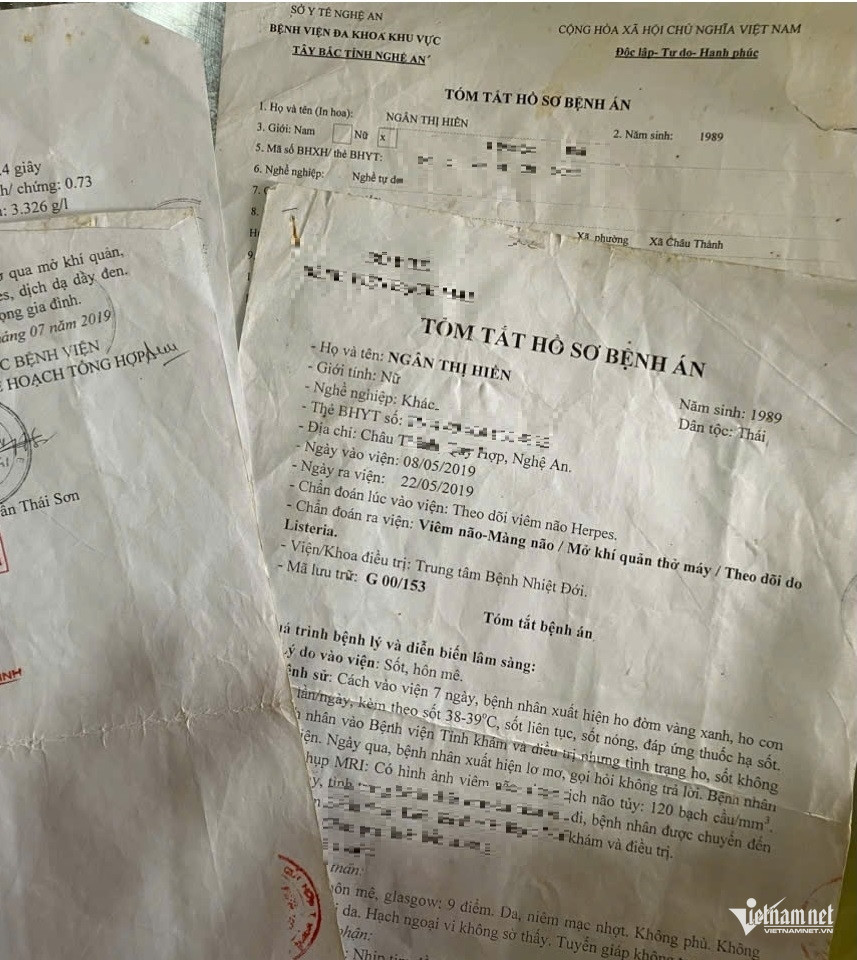 SỞ Y TẾ NGHỆ AN
BỆNH VIỆN ĐA KHOA KHU VỰC
TÂY BẮC TỈNH NGHỆ AN
CỘNG HÒA XÃ HỘI CHỦ NGHĨA VIỆT NAM
Độc lập- Tự do- Hạnh phúc
TÓM TẮT HỒ SƠ BỆNH ÁN
1. Họ và tên (In hoa): NGÂN THỊ HIÊN
2. Năm sinh: 1989
3. Giới: Nam Nữ x
5. Mã số BHXH/ thẻ BHYT:
6. Nghề nghiệp: Nghề tự do
7.
8.
Xã phường Xã Châu Thành
9.
.4 giây
h/ chứng: 0.73
: 3.326 g/l
qua mở khí quản,
dịch dạ dầy đen.
ọng gia đình.
háng 07 năm 2019
C BỆNH VIỆN
HOẠCH TỔNG HỢP
ần Thái Sơn
SỞ Y TẾ
TÓM TẮT HỒ SƠ BỆNH ÁN
- Họ và tên: NGÂN THỊ HIÊN
Năm sinh: 1989
- Giới tính: Nữ
Dân tộc: Thái
- Nghề nghiệp: Khác.
- Thẻ BHYT số:
- Địa chỉ: Châu Hợp, Nghệ An.
- Ngày vào viện: 08/05/2019
- Ngày ra viện: 22/05/2019
- Chẩn đoán lúc vào viện: Theo dõi viêm não Herpes.
- Chẩn đoán ra viện: Viêm não-Màng não / Mở khí quản thở máy / Theo dõi do
Listeria.
- Viện/Khoa điều trị: Trung tâm Bệnh Nhiệt Đới.
- Mã lưu trữ: G 00/153
Tóm tắt bệnh án
uá trình bệnh lý và diễn biến lâm sàng:
ý do vào viện: Sốt, hôn mê.
ệnh sử: Cách vào viện 7 ngày, bệnh nhân xuất hiện ho đờm vàng xanh, ho cơn
lần/ngày, kèm theo sốt 38-39°C, sốt liên tục, sốt nóng, đáp ứng thuốc hạ sốt.
nhân vào Bệnh viện Tỉnh khám và điều trị nhưng tình trạng ho, sốt không
iện. Ngày qua, bệnh nhân xuất hiện lơ mơ, gọi hỏi không trả lời. Bệnh nhân
hụp MRI: Có hình ảnh viêm dịch não tủy: 120 bạch cầu/mm³.
đi, bệnh nhân được chuyển đến
khám và điều trị.
thân:
ôn mê, glasgow: 9 điểm. Da, niêm mạc nhợt. Không phù. Không
i da. Hạch ngoại vi không sờ thấy. Tuyến giáp không
phận:
: Nhịp tim
vietnamnet
VIETNAMNET.VN